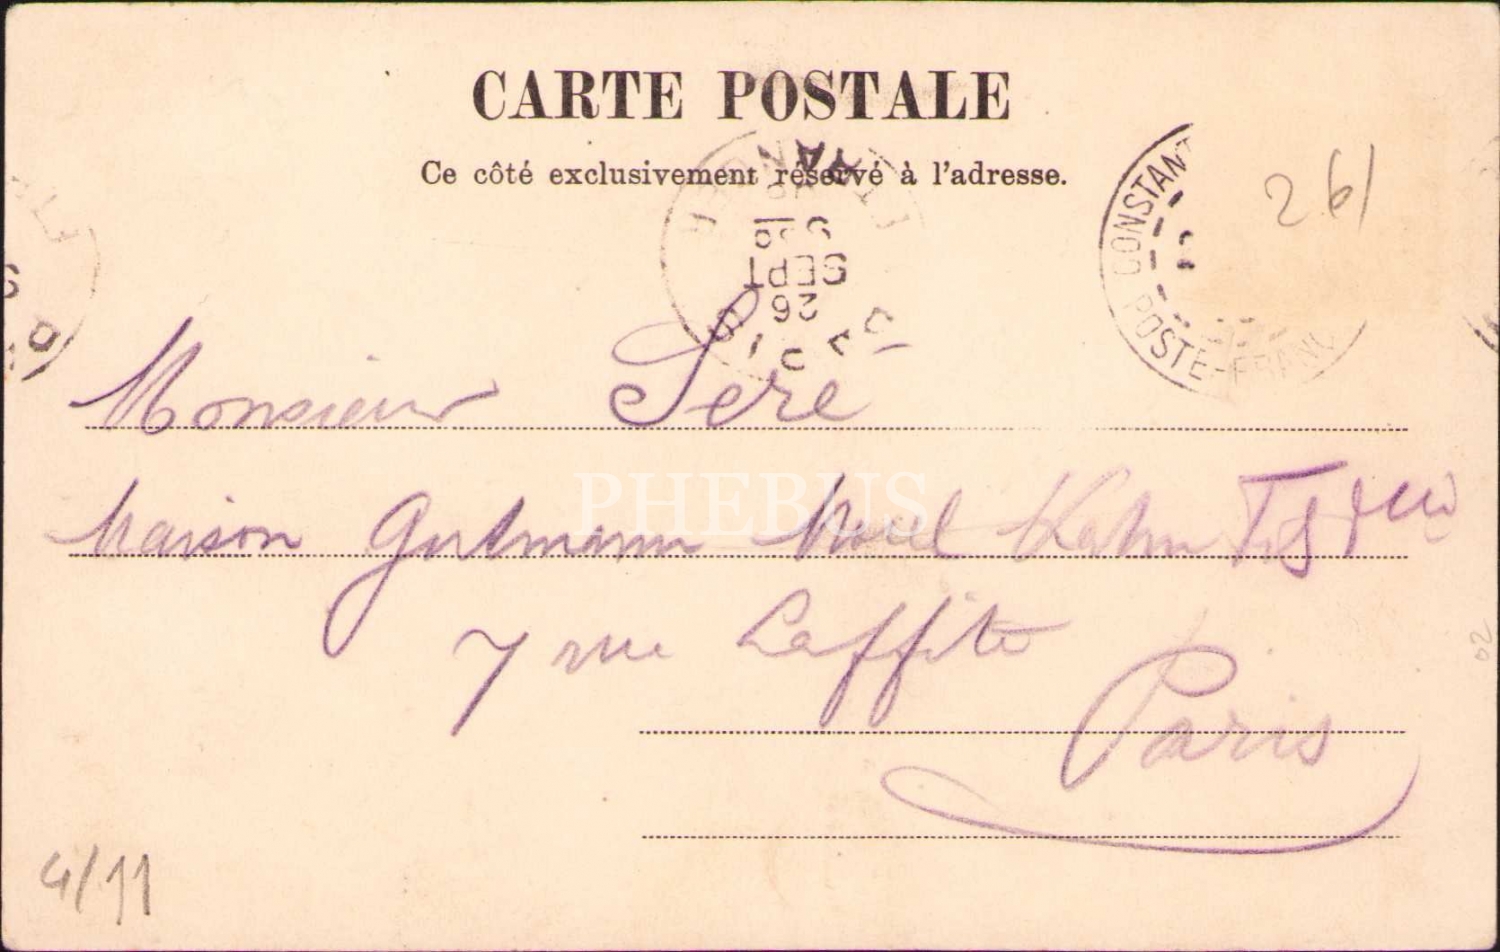 CARTE POSTALE
Ce côté exclusivement réservé à l'adresse.
CONSTANT
POSTE-FRANC
SEPT
26
261
Monsieur Séré
Maison Gutmann Kahn Fils
PHEBUS
7 rue Laffite
Paris
02
4/11